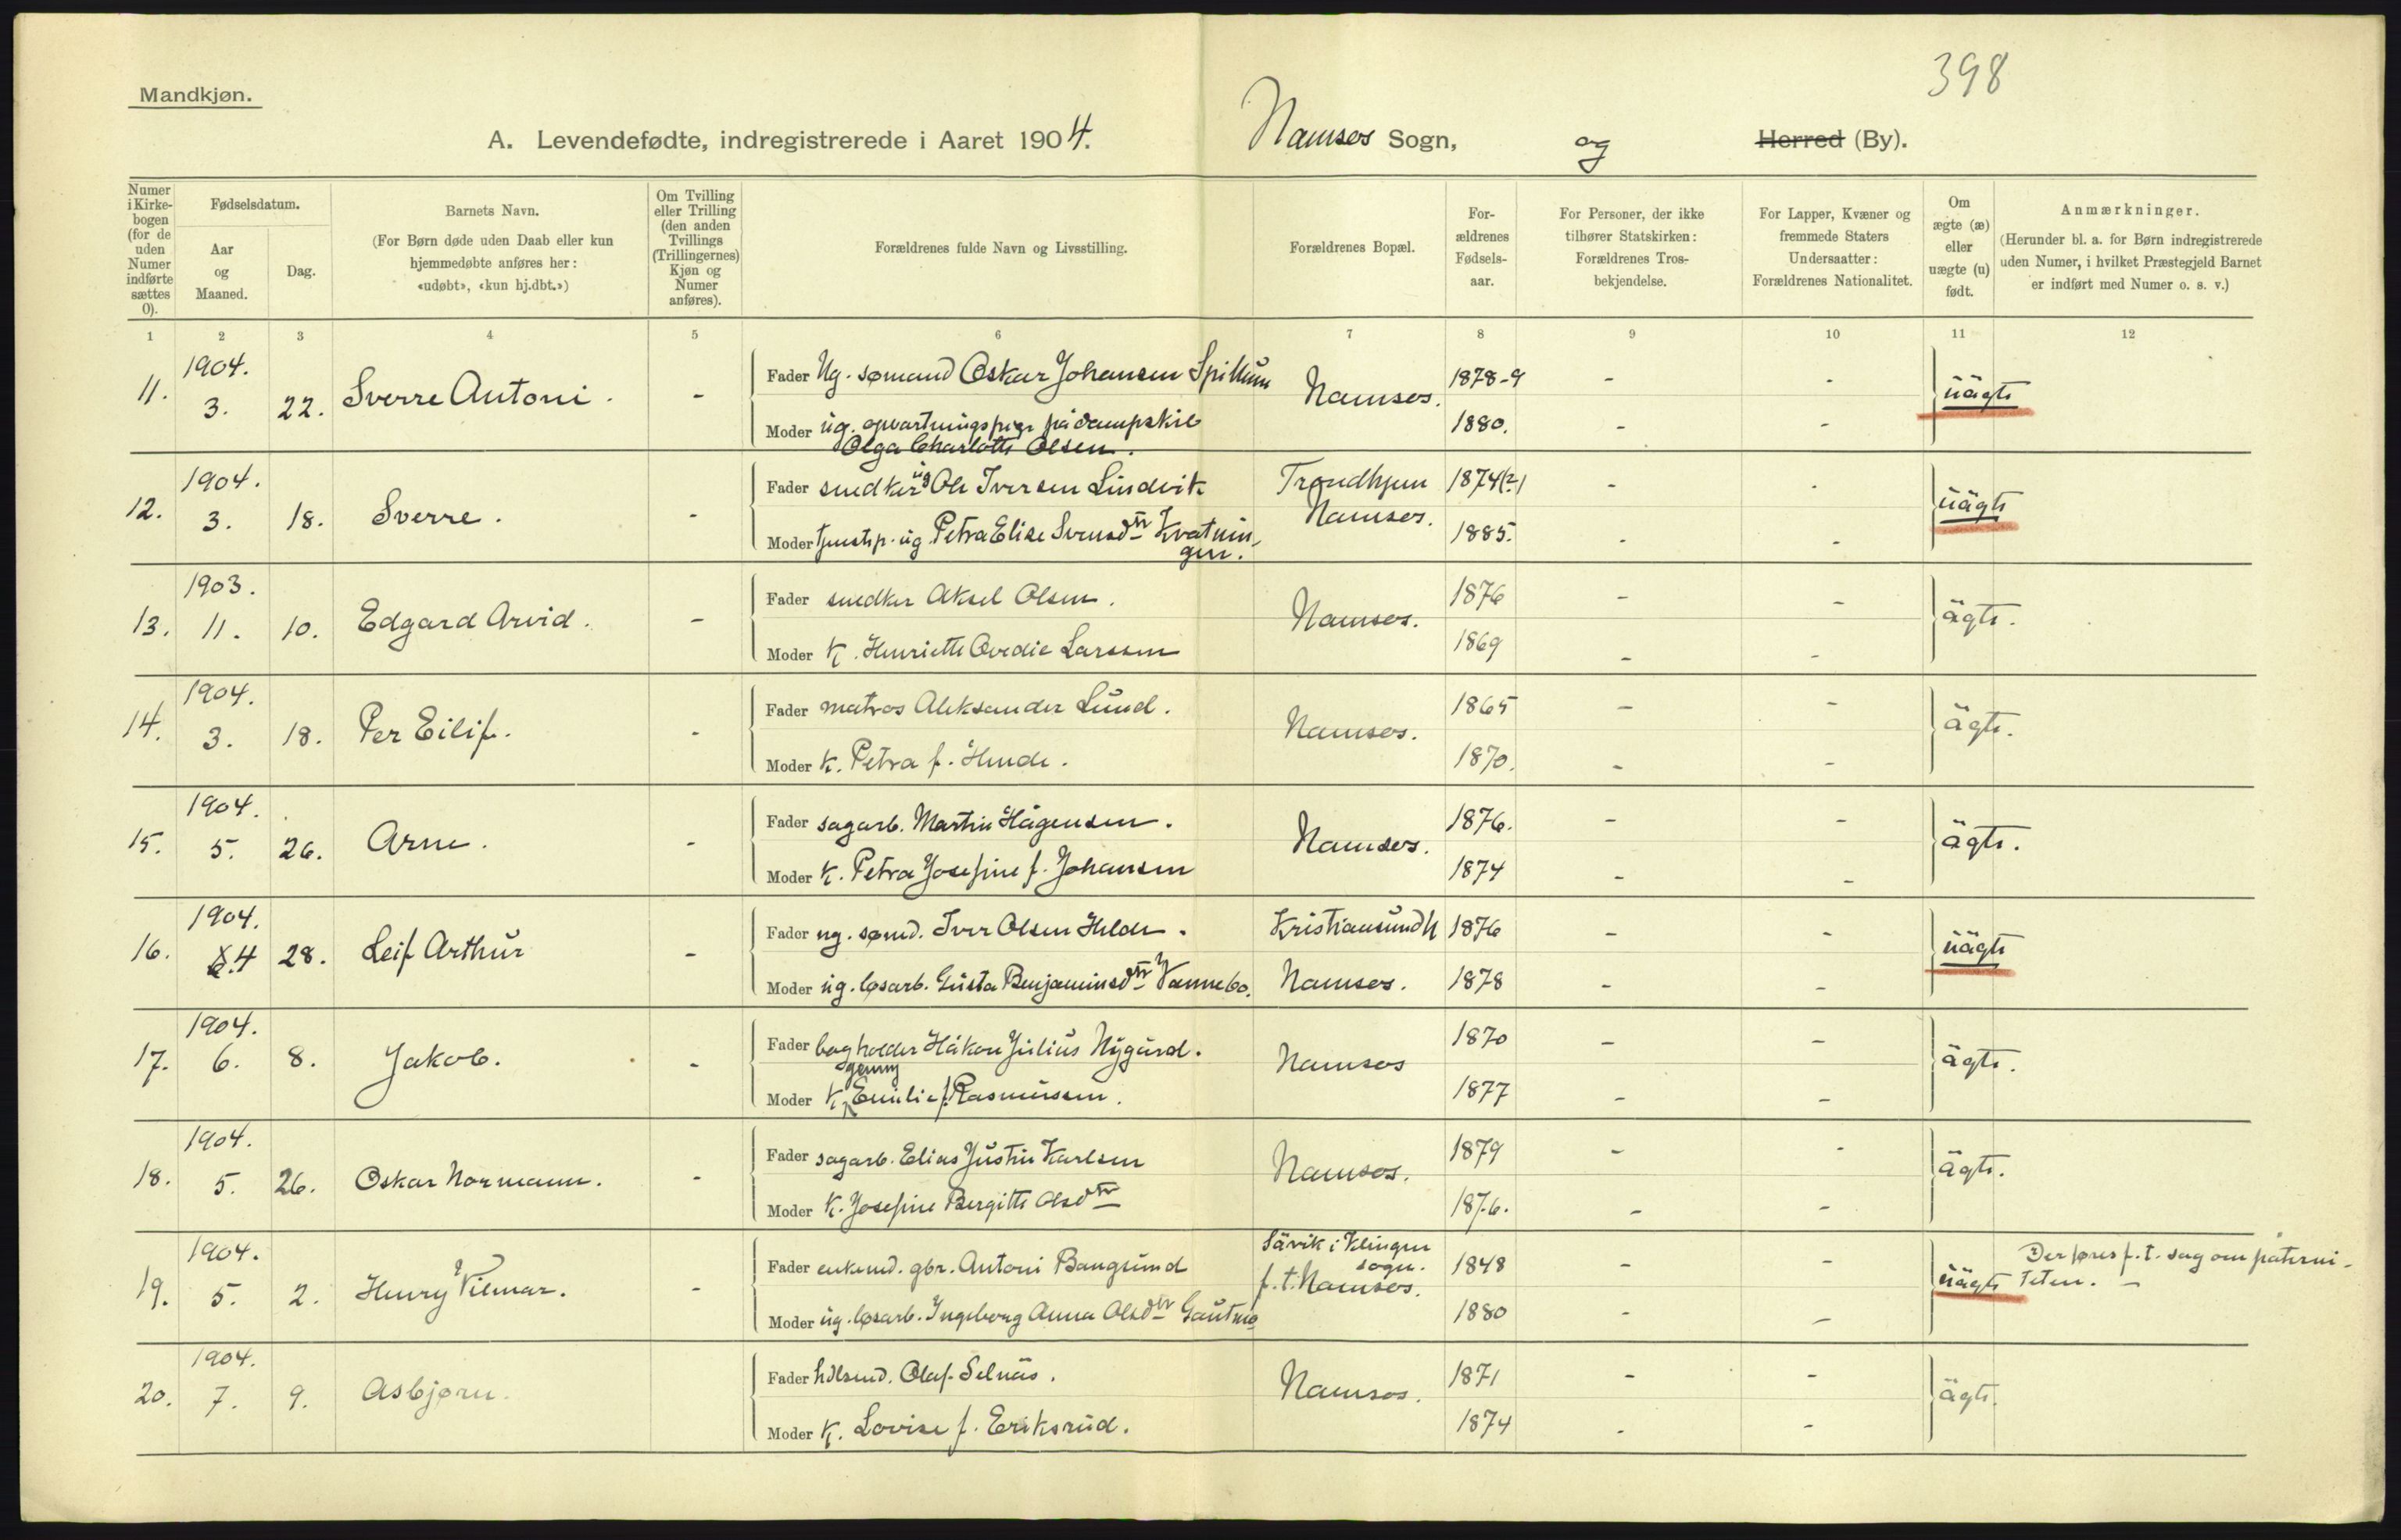 398
Mandkjøn.
A. Levendefødte, indregistrerede i Aaret 1904. Namsos Sogn, og Herred (By).
Numer i Kirkebogen (for de uden Numer indførte sættes 0).
Fødselsdatum.
Aar og Maaned.
Dag.
Barnets Navn.
(For Børn døde uden Daab eller kun hjemmedøbte anføres her: «udøbt», «kun hj.dbt.»)
Om Tvilling eller Trilling (den anden Tvillings (Trillingernes) Kjøn og Numer anføres).
Forældrenes fulde Navn og Livsstilling.
Forældrenes Bopæl.
Forældrenes Fødselsaar.
For Personer, der ikke tilhører Statskirken: Forældrenes Trosbekjendelse.
For Lapper, Kvæner og fremmede Staters Undersaatter: Forældrenes Nationalitet.
Om ægte (æ) eller uægte (u) født.
Anmærkninger.
(Herunder bl. a. for Børn indregistrerede uden Numer, i hvilket Præstegjeld Barnet er indført med Numer o. s. v.)
1 2 3 4 5 6 7 8 9 10 11 12
11. 1904. 3. 22. Sverre Antoni. -
Fader Ug. sømand Oskar Johansen Spillum Namsos. 1878-9 - - uägte
Moder ug. opvartningspige på dampskib 1880. - -
Olga Charlotte Olsen.
12. 1904. 3. 18. Sverre. -
Fader snedker ug Ole Iversen Lindvik Trondhjem 1874(?) - - uägte
Moder tjenstp. ug. Petra Elise Svensdtr Kvatnin- Namsos. 1885. - -
gen.
13. 1903. 11. 10. Edgard Arvid. -
Fader snedker Aksel Olsen. Namsos. 1876 - - ägte.
Moder K. Henriette Ovedie Larssen 1869 - -
14. 1904. 3. 18. Per Eilif. -
Fader matros Aleksander Lund. Namsos. 1865 - - ägte.
Moder K. Petra f. Hende. 1870. - -
15. 1904. 5. 26. Arne. -
Fader sagarb. Martin Hågensen. Namsos. 1876. - - ägte.
Moder K. Petra Josefine f. Johansen 1874 - -
16. 1904. 4 28. Leif Arthur -
Fader ug. sømd. Iver Olsen Helde. Kristiansund N 1876 - - uägte
Moder ug. løsarb. Gusta Benjaminsdtr Vannebo. Namsos. 1878 - -
17. 1904. 6. 8. Jakob. -
Fader bogholder Håkon Julius Nygård. Namsos 1870 - - ägte.
Jenny
Moder K. Emilie f. Rasmussen. 1877 - -
18. 1904. 5. 26. Oskar Normann. -
Fader sagarb. Elias Justin Karlsen Namsos. 1879 - - ägte.
Moder K. Josefine Bergitte Olsdtr 1876. - -
19. 1904. 5. 2. Henry Vilmar. -
Fader enkemd. gbr. Antoni Bangsund Sävik i Klingen sogn. 1848 - - uägte Der føres f.t. sag om paterni-
teten. -
Moder ug. løsarb. Ingeborg Anna Olsdtr Gautmo f.t. Namsos. 1880 - -
20. 1904. 7. 9. Asbjørn.
Fader hdlsmd. Olaf Selnäs. Namsos. 1871 - - ägte.
Moder K. Lovise f. Eriksrud. 1874 - -